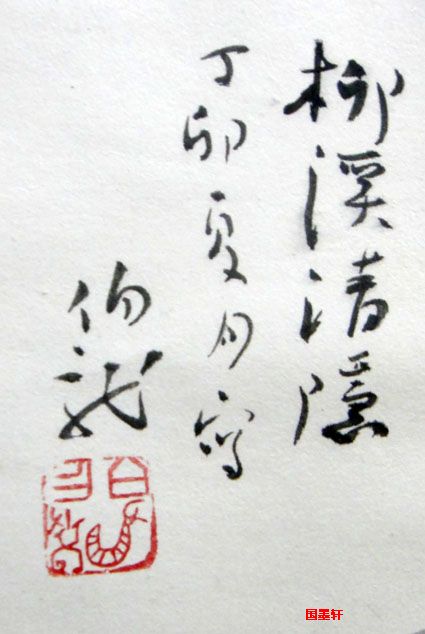 柳溪清隐
丁卯夏月寫
伯龍
国墨轩